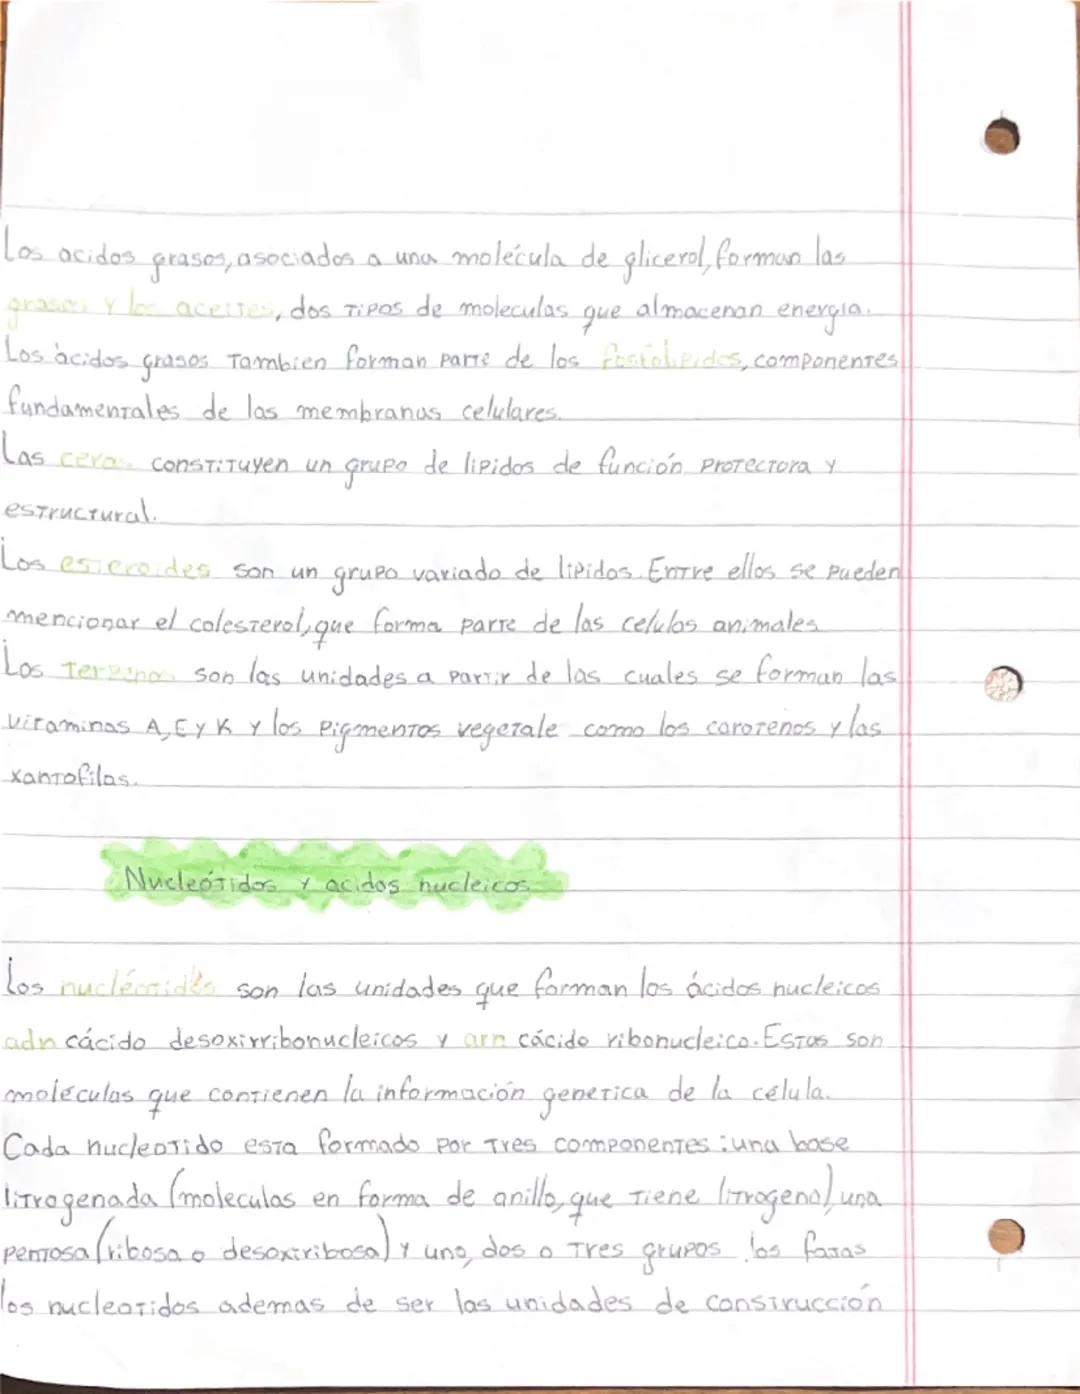 Los acidos grasos, asociados a una molécula de glicerol, forman las
grasas y los aceites, dos tipos de moleculas que almacenan energia.
Los ácidos grasos Tambien forman parte de los fosfolipidos, componentes
fundamentales de las membranas celulares.
Las ceras constituyen un grupo de lipidos de función protectora y
estructural.
Los esteroides son un grupo variado de lipidos. Entre ellos se pueden
mencionar el colesterol, que forma parte de las celulas animales
Los terpenos son las unidades a partir de las cuales se forman las
vitaminas A, E y K y los pigmentos vegetale como los carotenos y las
xantofilas.
Nucleótidos y acidos nucleicos
Los nucleótidos son las unidades que forman los ácidos nucleicos
adn cácido desoxirribonucleicos y arn cácido ribonucleico. Estas son
moléculas que contienen la información genetica de la célula.
Cada nucleotido esta formado por tres componentes: una base
litrogenada (moleculas en forma de anillo, que tiene litrogeno) una
pentosa (ribosa o desoxiribosa) y uno, dos o tres grupos los fatas
los nucleotidos ademas de ser las unidades de construcción